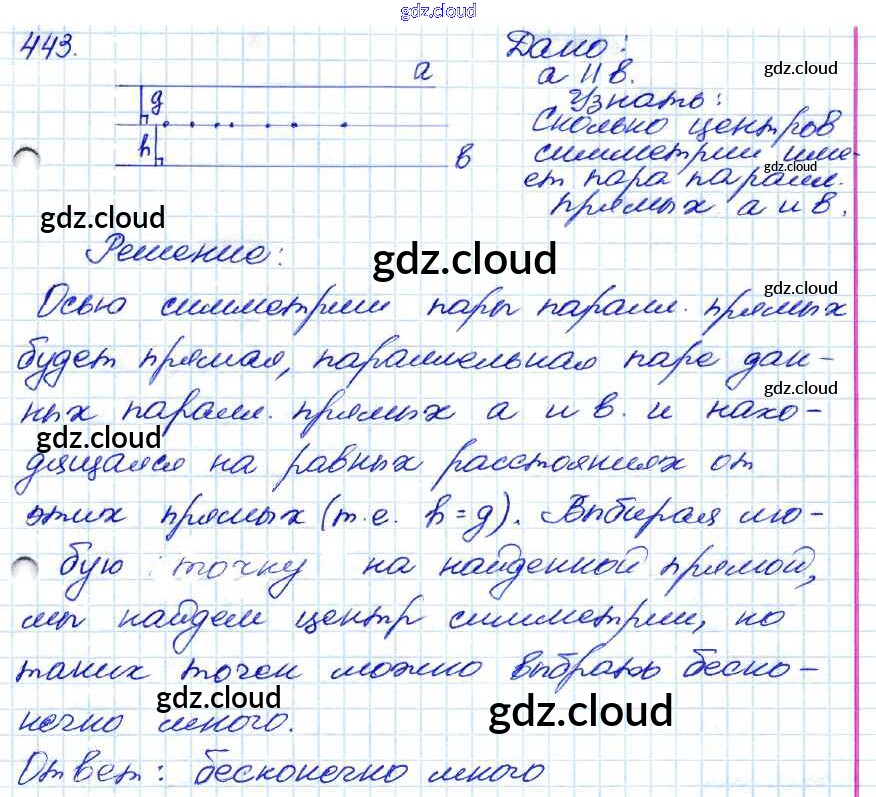 gdz.cloud
443.
a
g
h
в
Дано:
a || в.
gdz.cloud
Узнать:
Сколько центров
gdz.cloud
симметрии име-
gdz.cloud
ет пара паралл.
прямых а и в.
gdz.cloud
Решение:
gdz.cloud
gdz.cloud
Осью симметрии пары паралл. прямых
будет прямая, параллельная паре дан-
gdz.cloud
ных паралл. прямых а и в. и нахо-
gdz.cloud
дящаяся на равных расстояниях от
этих прямых (т.е. h = g). Выбирая лю-
бую точку на найденной прямой,
мы найдем центр симметрии, но
таких точек можно выбрать беско-
gdz.cloud
нечно много.
gdz.cloud
Ответ: бесконечно много